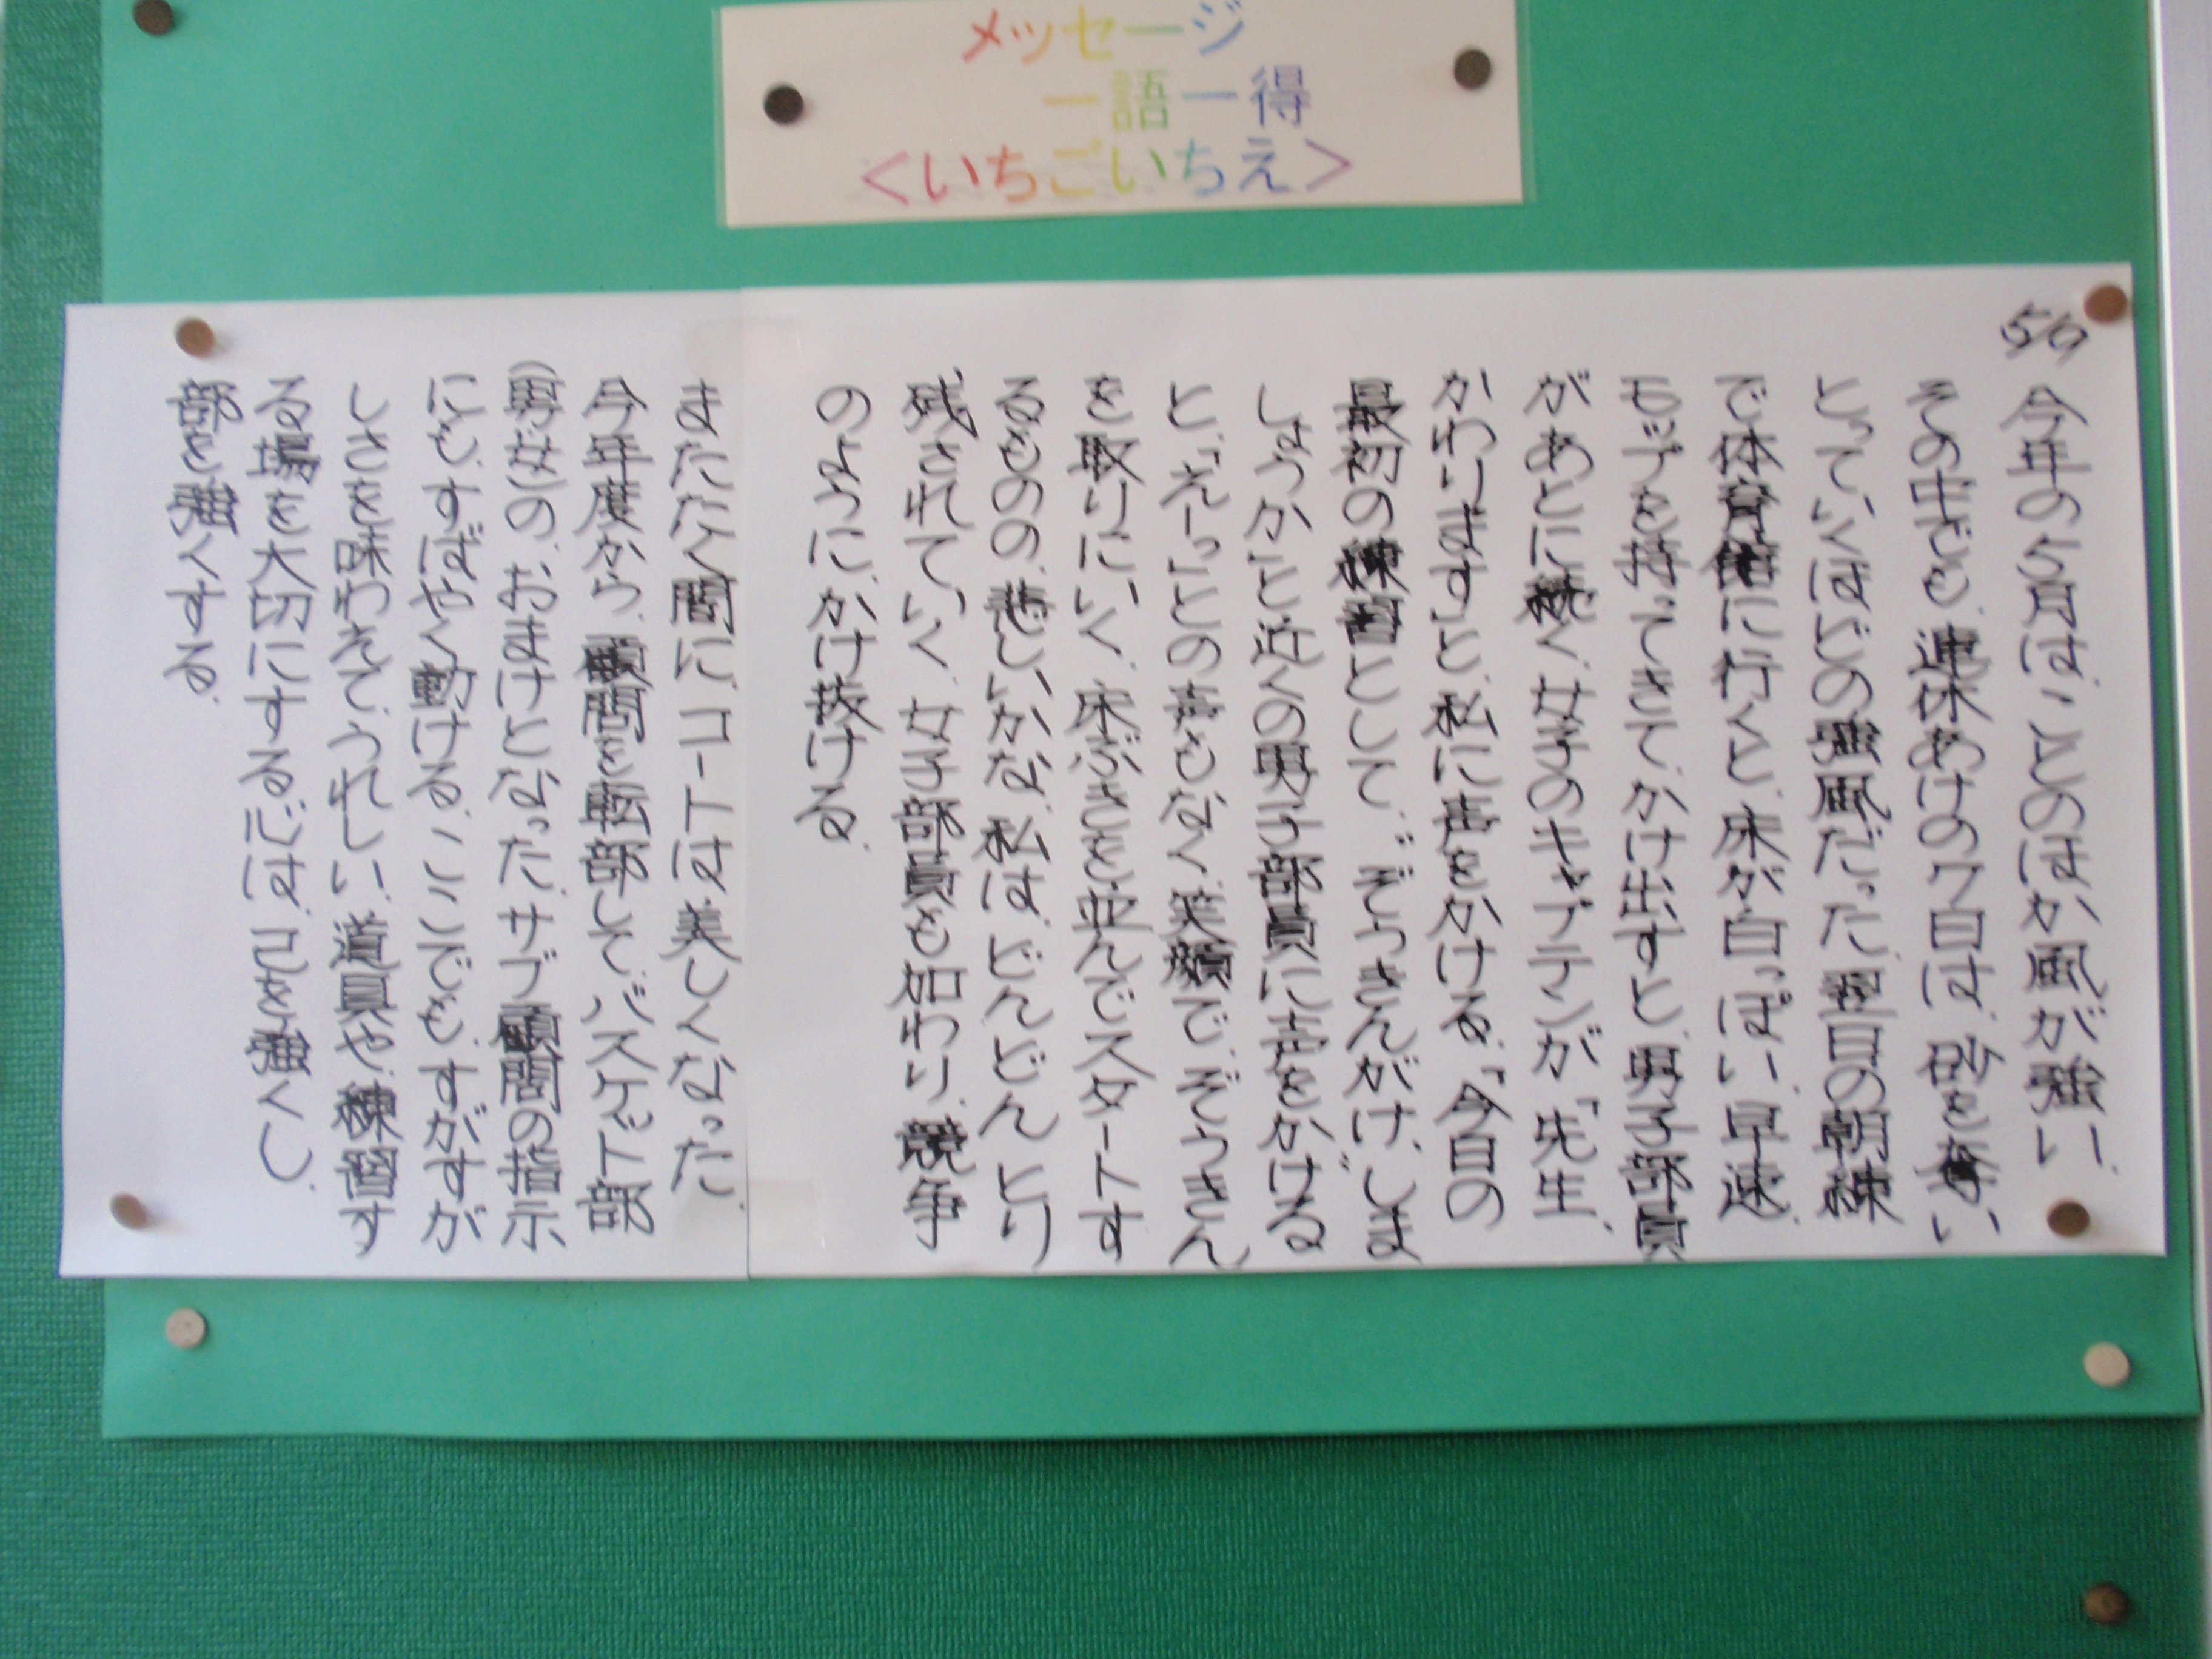 メッセージ
一語一得
<いちごいちえ>
5/9
今年の5月は、ことのほか風が強い。
その中でも、連休あけの7日は、砂を奪い
とっていくほどの強風だった。翌日の朝練
で体育館に行くと、床が白っぽい。早速、
モップを持ってきて、かけ出すと、男子部員
があとに続く。女子のキャプテンが「先生、
かわります」と、私に声をかける。「今日の
最初の練習として、〝ぞうきんがけ〟しま
しょうか」と近くの男子部員に声をかける
と、「えーっ」との声もなく、笑顔で、ぞうきん
を取りにいく。床ぶきを並んでスタートす
るものの、悲しいかな、私は、どんどんとり
残されていく。女子部員も加わり、競争
のように、かけ抜ける。
またたく間に、コートは美しくなった。
今年度から、顧問を転部して、バスケット部
(男女)の、おまけとなった、サブ顧問の指示
にも、すばやく動ける。ここでも、すがすが
しさを味わえて、うれしい。道具や、練習す
る場を大切にする心は、己を強くし、
部を強くする。